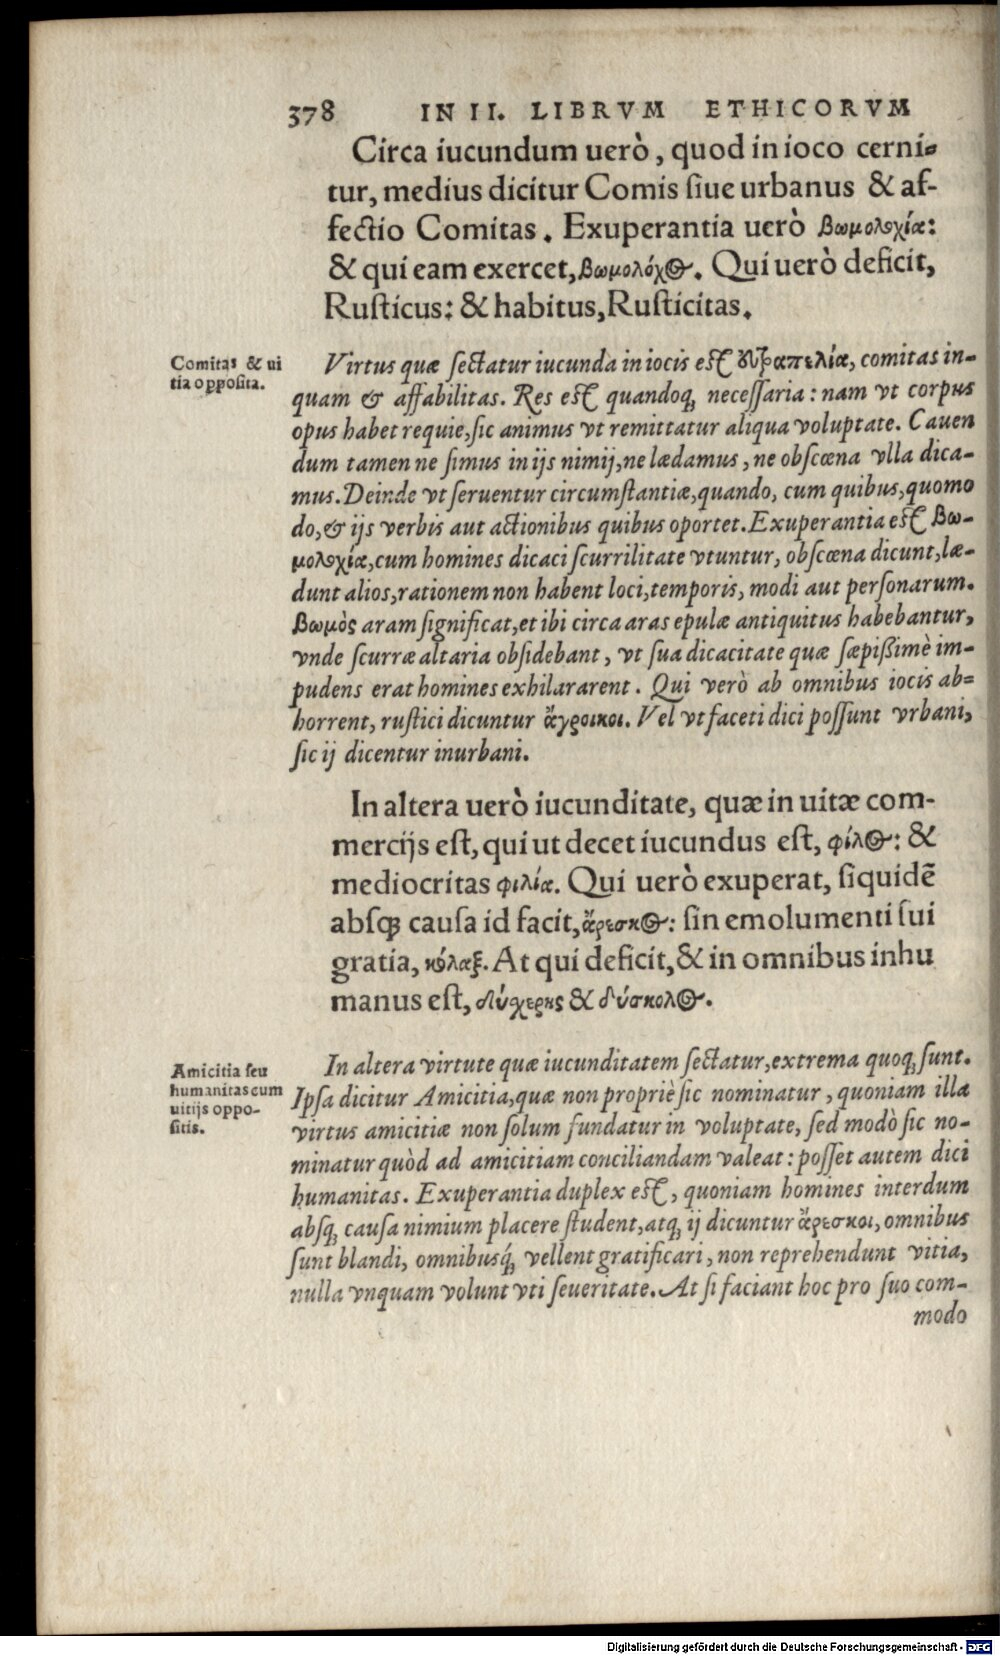 378 IN II. LIBRVM ETHICORVM
Circa iucundum uerò, quod in ioco cerni-
tur, medius dicitur Comis ſiue urbanus & af-
fectio Comitas. Exuperantia uerò βωμολοχία:
& qui eam exercet, βωμολόχος. Qui uerò deficit,
Ruſticus: & habitus, Ruſticitas.
Comitas & ui
tia oppoſita.
Virtus quæ ſectatur iucunda in iocis eſt ευτραπελία, comitas in-
quam & affabilitas. Res eſt quandoq; neceſſaria: nam vt corpus
opus habet requie, ſic animus vt remittatur aliqua voluptate. Cauen
dum tamen ne ſimus in ijs nimij, ne lædamus, ne obſcœna vlla dica-
mus. Deinde vt ſeruentur circumſtantiæ, quando, cum quibus, quomo
do, & ijs verbis aut actionibus quibus oportet. Exuperantia eſt βω-
μολοχία, cum homines dicaci ſcurrilitate vtuntur, obſcœna dicunt, læ-
dunt alios, rationem non habent loci, temporis, modi aut perſonarum.
βωμὸς aram ſignificat, et ibi circa aras epulæ antiquitus habebantur,
vnde ſcurræ altaria obſidebant, vt ſua dicacitate quæ ſæpißimè im-
pudens erat homines exhilararent. Qui verò ab omnibus iocis ab-
horrent, ruſtici dicuntur ἄγροικοι. Vel vt faceti dici poſſunt vrbani,
ſic ij dicentur inurbani.
In altera uerò iucunditate, quæ in uitæ com-
mercijs eſt, qui ut decet iucundus eſt, φίλος: &
mediocritas φιλία. Qui uerò exuperat, ſiquidē
abſq; cauſa id facit, ἄρεσκος: ſin emolumenti ſui
gratia, κόλαξ. At qui deficit, & in omnibus inhu
manus eſt, δύσχερης & δύσκολος.
Amicitia ſeu
humanitas cum
uitijs oppo-
ſitis.
In altera virtute quæ iucunditatem ſectatur, extrema quoq; ſunt.
Ipſa dicitur Amicitia, quæ non propriè ſic nominatur, quoniam illa
virtus amicitiæ non ſolum fundatur in voluptate, ſed modò ſic no-
minatur quòd ad amicitiam conciliandam valeat: poſſet autem dici
humanitas. Exuperantia duplex eſt, quoniam homines interdum
abſq; cauſa nimium placere ſtudent, atq; ij dicuntur ἄρεσκοι, omnibus
ſunt blandi, omnibusq́; vellent gratificari, non reprehendunt vitia,
nulla vnquam volunt vti ſeueritate. At ſi faciant hoc pro ſuo com-
modo
Digitalisierung gefördert durch die Deutsche Forschungsgemeinschaft - DFG